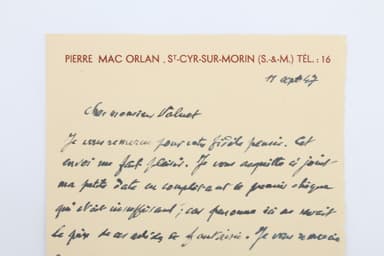 PIERRE MAC ORLAN . ST-CYR-SUR-MORIN (S.-&-M.) TÉL. : 16
11 sept 47
Cher monsieur
Je vous remercie pour votre fidèle pensée. Cet
envoi me fait plaisir. Je vous acquitte ci joint
ma petite dette en complétant le premier chèque
qui était insuffisant ; car personne ici ne savait
le prix de ces articles de fantaisie. Je vous remercie